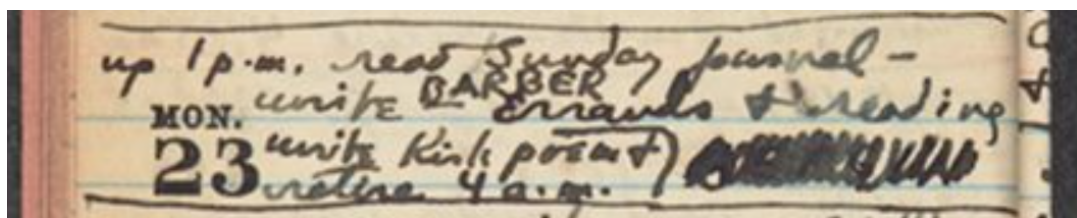 up 1 p.m. read Sunday journal -
write BARBER Errands & reading
MON.
23 write Kirk poem &)
retire 4 a.m.